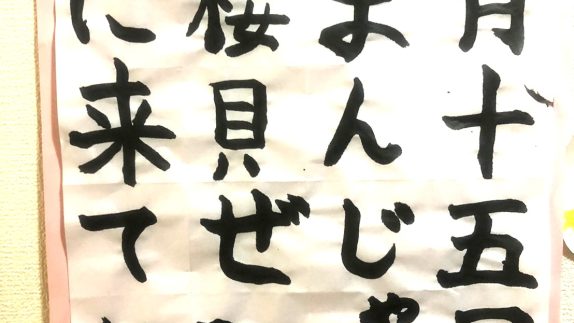 月十五
まんじゃ
桜貝ぜ
に来て